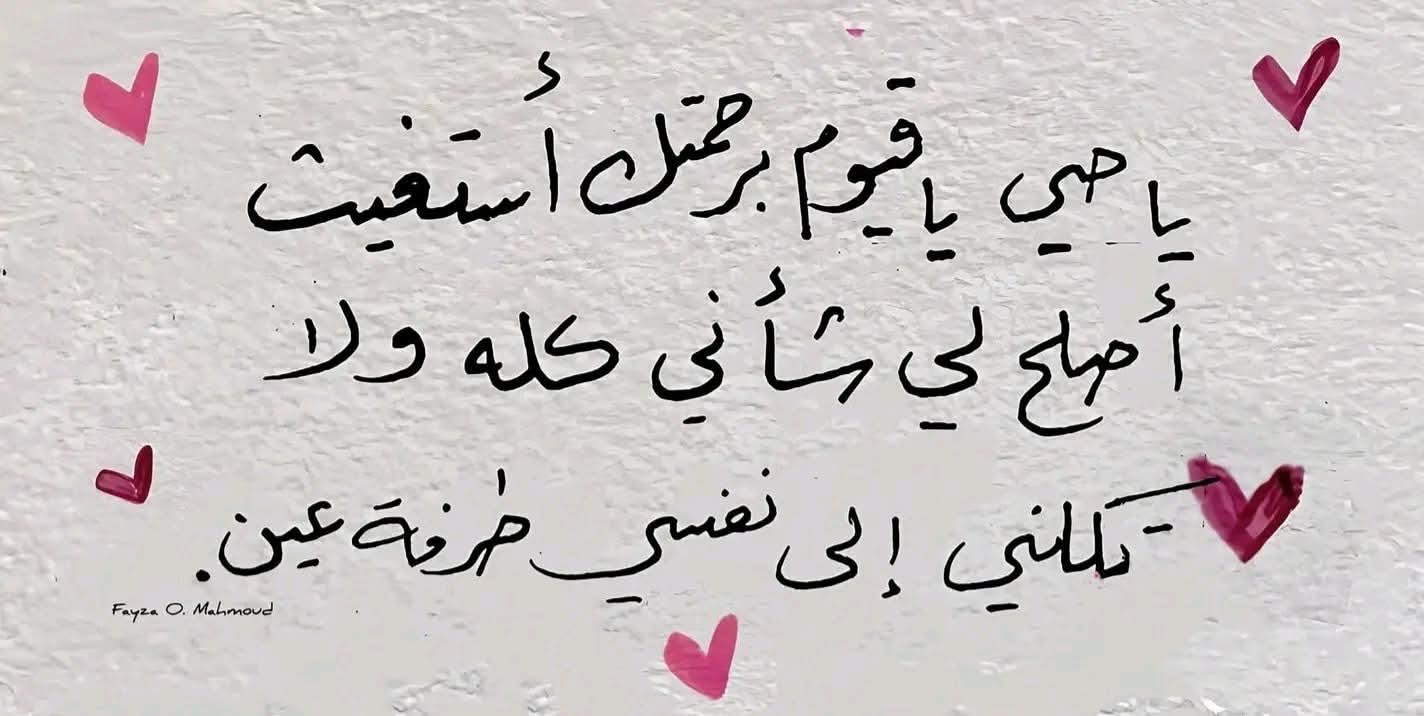 يا حي يا قيوم برحمتك أستغيث
أصلح لي شأني كله ولا
تكلني إلى نفسي طرفة عين.
Fayza O. Mahmoud